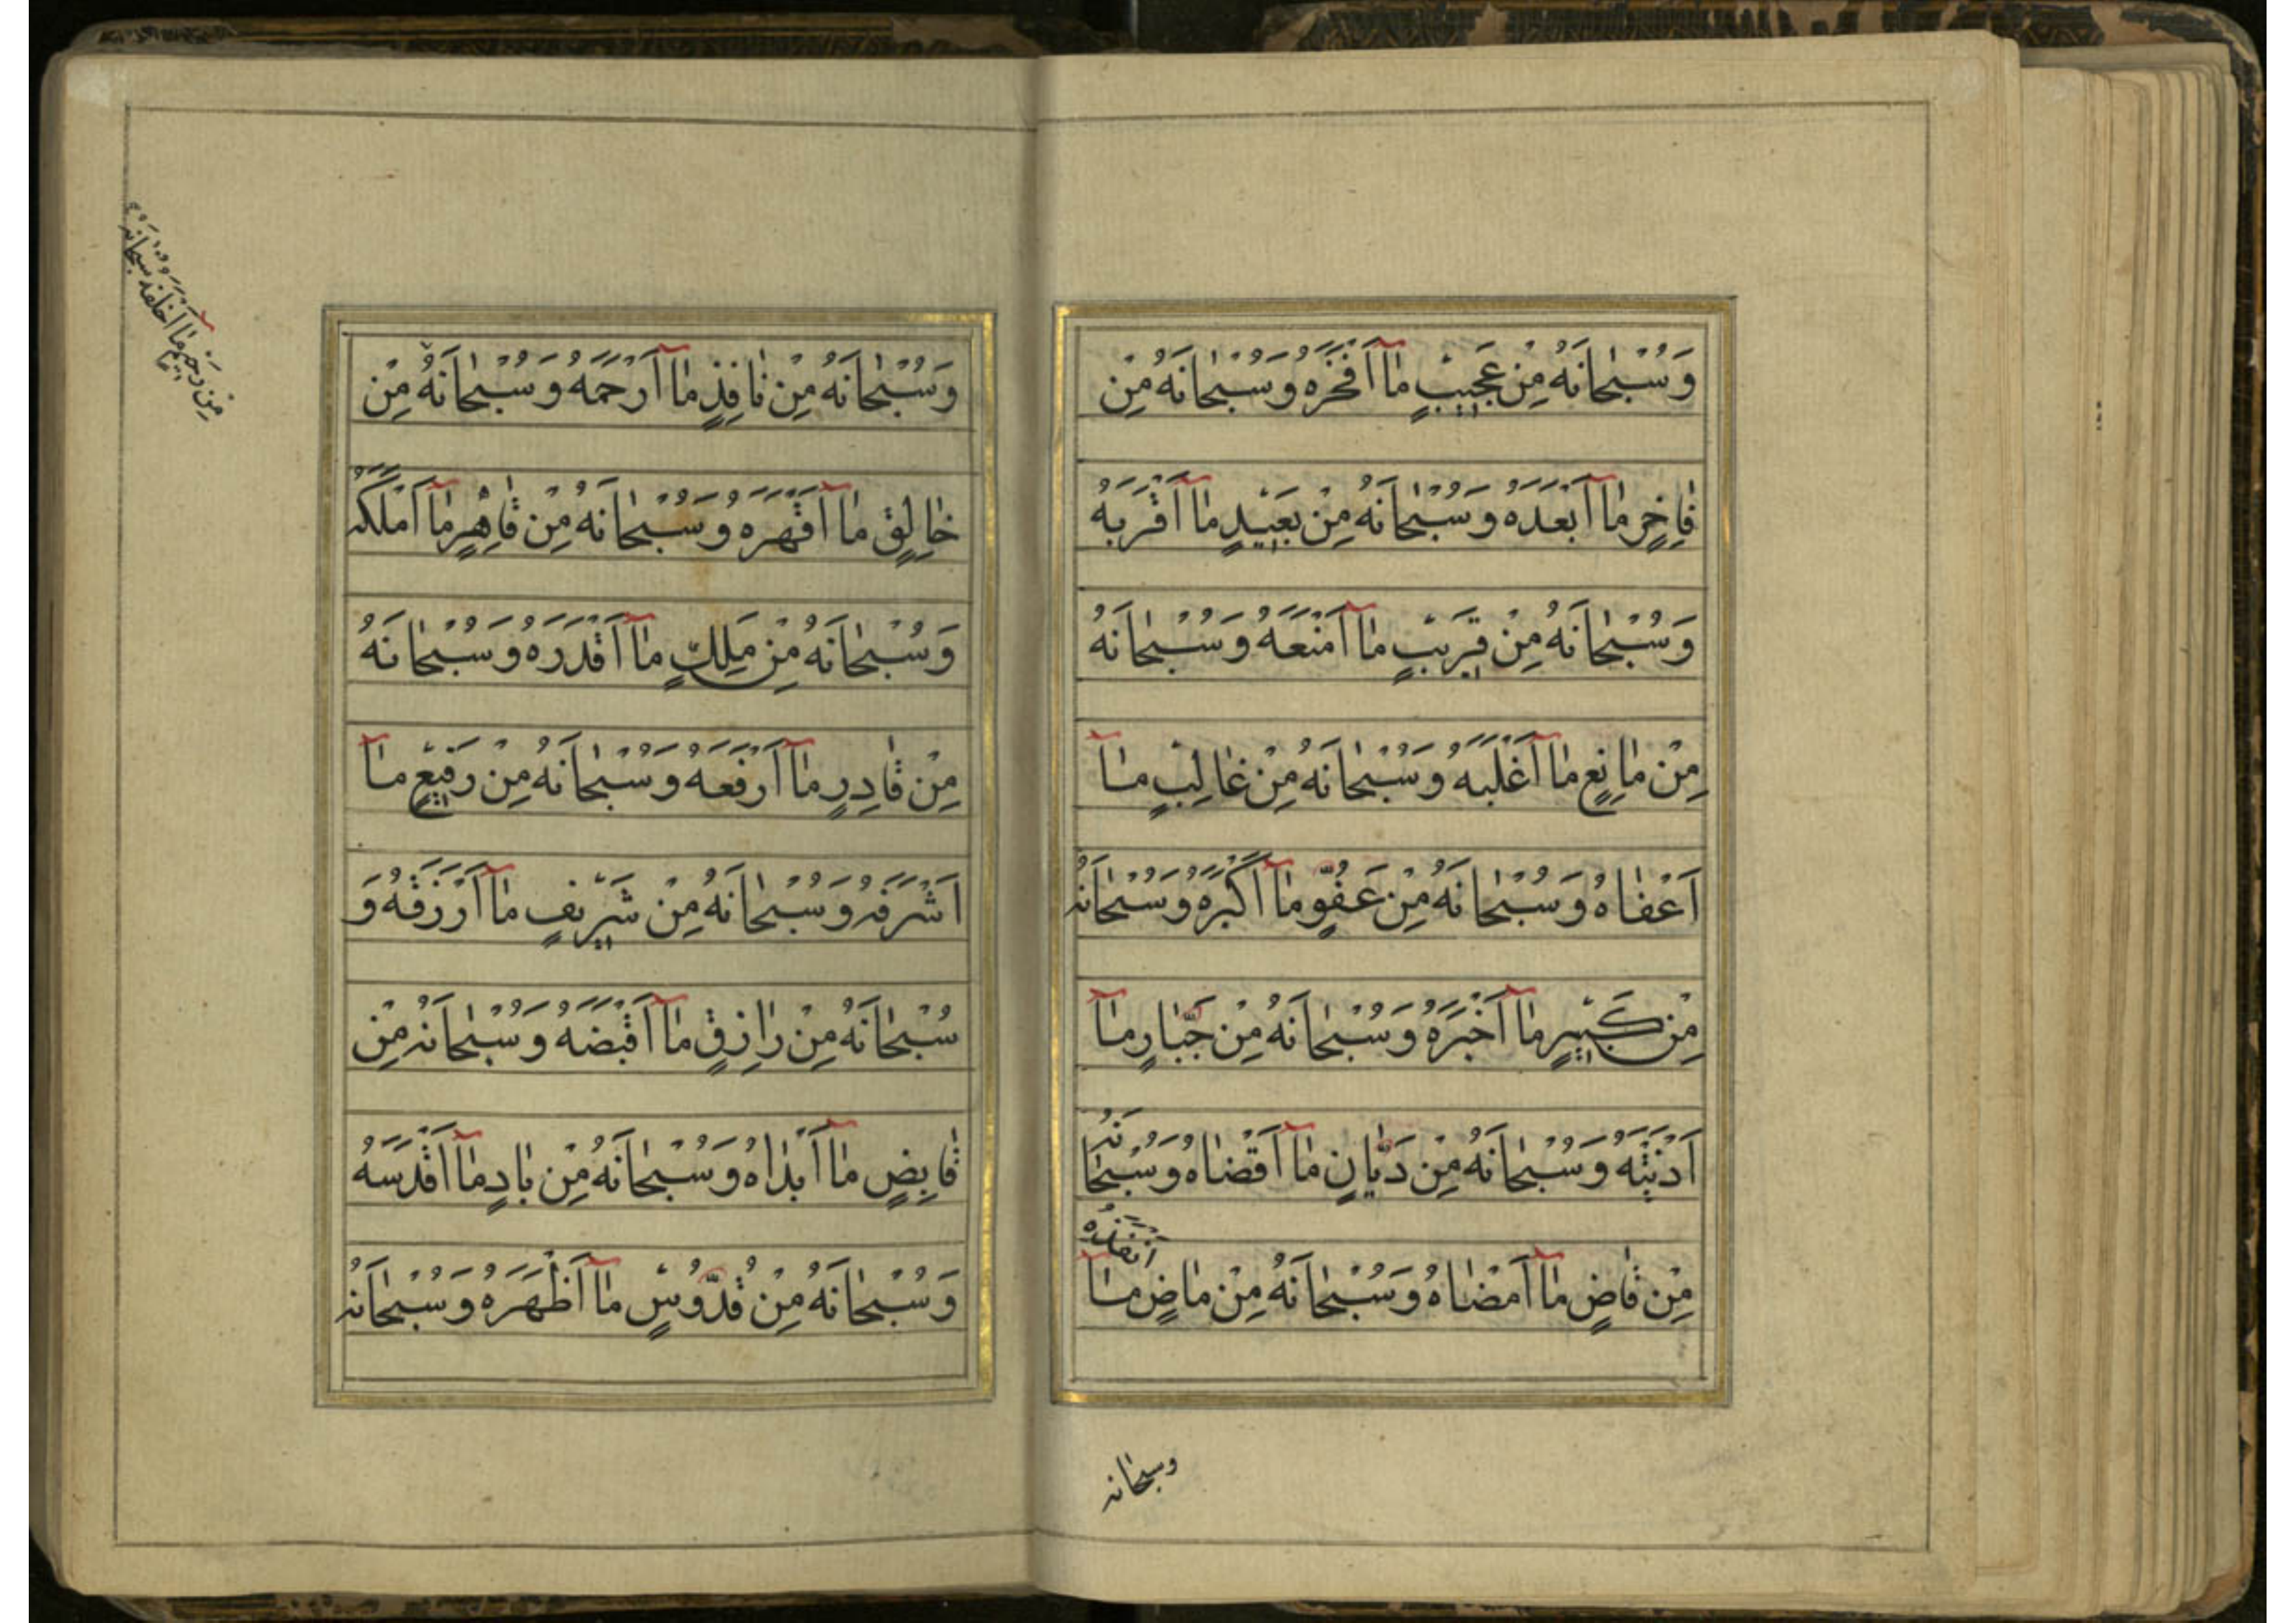 وَسُبْحَانَهُ مِنْ عَجِيبٍ مَا أَفْخَرَهُ وَسُبْحَانَهُ مِنْ
فَاخِرٍ مَا أَبْعَدَهُ وَسُبْحَانَهُ مِنْ بَعِيدٍ مَا أَقْرَبَهُ
وَسُبْحَانَهُ مِنْ قَرِيبٍ مَا أَمْنَعَهُ وَسُبْحَانَهُ
مِنْ مَانِعٍ مَا أَغْلَبَهُ وَسُبْحَانَهُ مِنْ غَالِبٍ مَا
أَعْفَاهُ وَسُبْحَانَهُ مِنْ عَفُوٍّ مَا أَكْبَرَهُ وَسُبْحَانَهُ
مِنْ كَبِيرٍ مَا أَخْبَرَهُ وَسُبْحَانَهُ مِنْ جَبَّارٍ مَا
أَدْيَنَهُ وَسُبْحَانَهُ مِنْ دَيَّانٍ مَا أَقْضَاهُ وَسُبْحَانَهُ
مِنْ قَاضٍ مَا أَمْضَاهُ وَسُبْحَانَهُ مِنْ مَاضٍ مَا أَنْفَذَهُ
وسبحانه
وَسُبْحَانَهُ مِنْ نَافِذٍ مَا أَرْحَمَهُ وَسُبْحَانَهُ مِنْ
خَالِقٍ مَا أَقْهَرَهُ وَسُبْحَانَهُ مِنْ قَاهِرٍ مَا أَمْلَكَهُ
وَسُبْحَانَهُ مِنْ مَلِكٍ مَا أَقْدَرَهُ وَسُبْحَانَهُ
مِنْ قَادِرٍ مَا أَرْفَعَهُ وَسُبْحَانَهُ مِنْ رَفِيعٍ مَا
أَشْرَفَهُ وَسُبْحَانَهُ مِنْ شَرِيفٍ مَا أَرْزَقَهُ وَ
سُبْحَانَهُ مِنْ رَازِقٍ مَا أَقْبَضَهُ وَسُبْحَانَهُ مِنْ
قَابِضٍ مَا أَبْدَاهُ وَسُبْحَانَهُ مِنْ بَادٍ مَا أَقْدَسَهُ
وَسُبْحَانَهُ مِنْ قُدُّوسٍ مَا أَظْهَرَهُ وَسُبْحَانَهُ
مِنْ رَحِيمٍ مَا أَخْلَقَهُ سُبْحَانَهُ